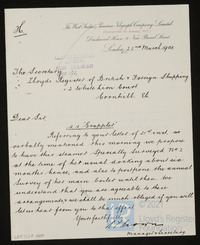 The West India & Panama Telegraph Company Limited
Dashwood House, 9 New Broad Street
London, 22 March 1901
The Secretary
Lloyds Register of British & Foreign Shipping
2 White Lion Court
Cornhill EC
Dear Sir,
s.s. "Grappler"
Referring to your letter of 21st inst. as
verbally mentioned this morning we propose
to have this steamer Specially Surveyed No 2
at the time of her usual docking about six
months hence, and also to postpone the annual
Survey of her main boiler until then. We
understand that you are agreeable to these
arrangements & we shall be much obliged if you will
let us hear from you to this effect.
Yours faithfully
Manager & Secretary
Lloyd's Register